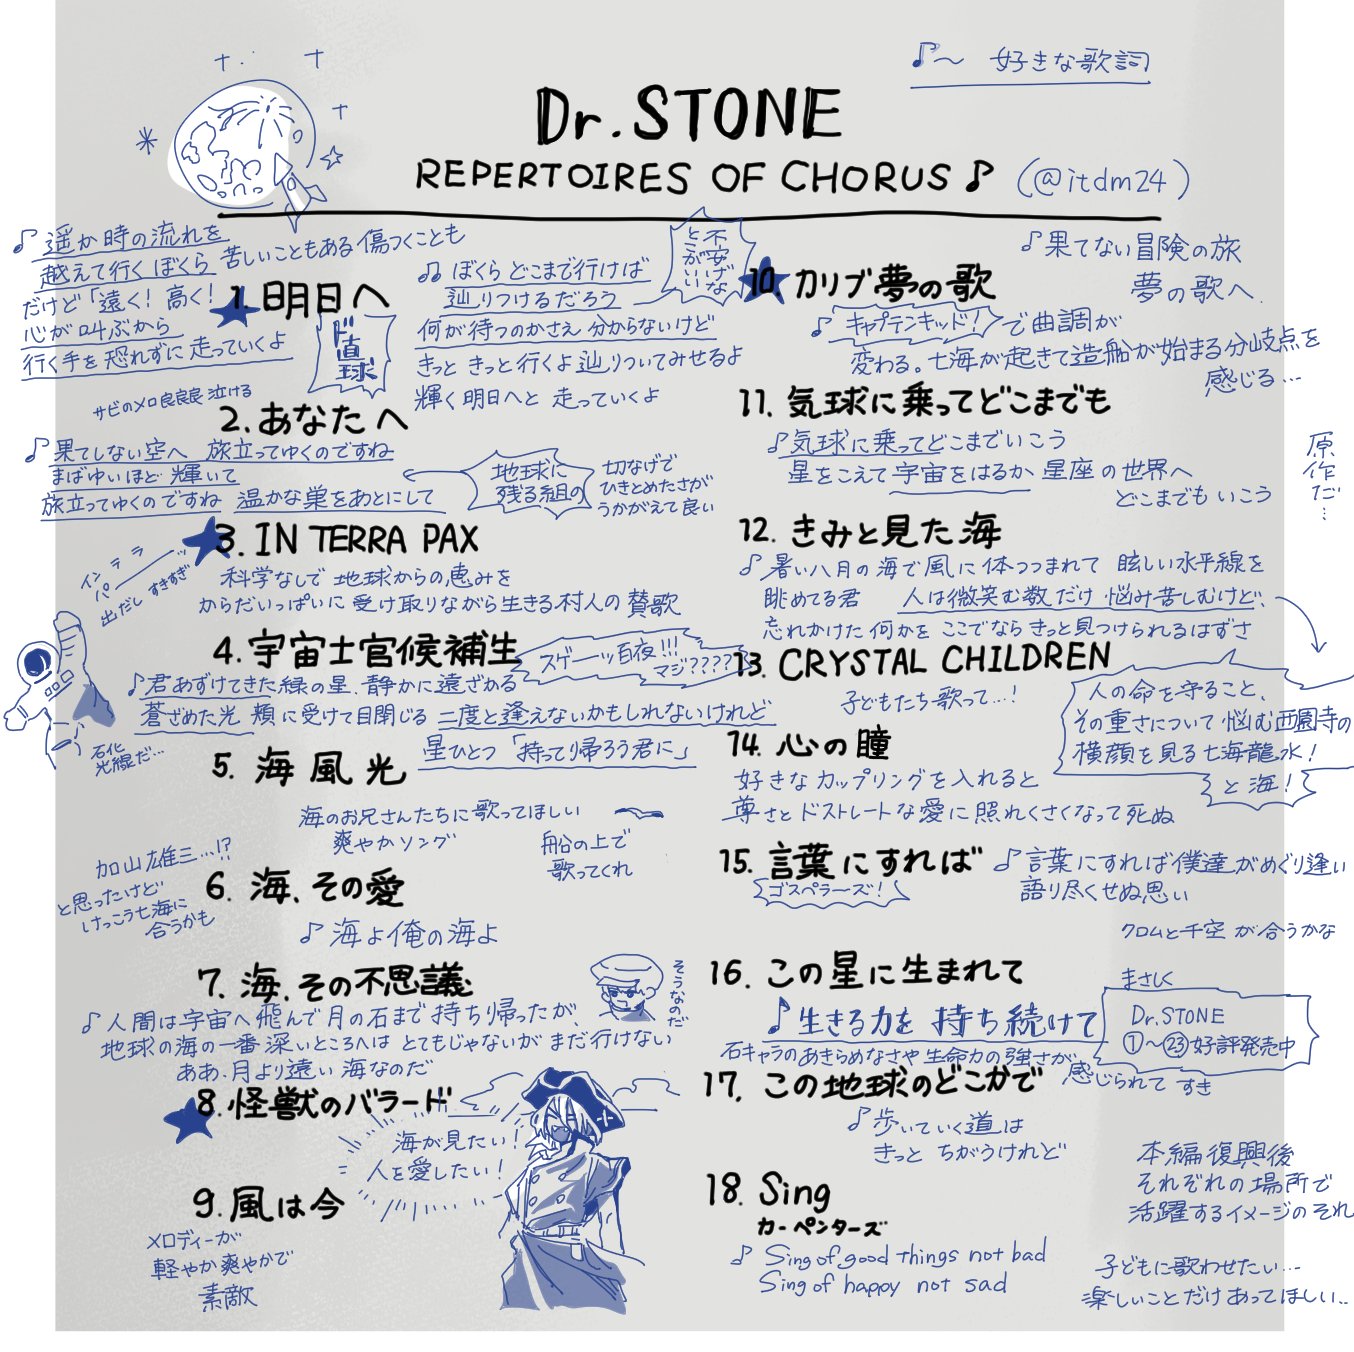 ♪〜 好きな歌詞
Dr.STONE
REPERTOIRES OF CHORUS♪
(@itdm24)
♪遥か時の流れを
越えて行くぼくら 苦しいこともある 傷つくことも
だけど「遠く！高く！
心が叫ぶから
行く手を恐れずに走っていくよ
1. 明日へ
ド直球
♫ ぼくらどこまで行けば
辿りつけるだろう
不安げな
とこがいい
何が待つのかさえ分からないけど
きっときっと行くよ辿りついてみせるよ
輝く明日へと 走っていくよ
サビのメロ良良良泣ける
2. あなたへ
♪果てしない空へ 旅立ってゆくのですね
まばゆいほど輝いて
旅立ってゆくのですね 温かな巣をあとにして
地球に
残る組の
切なげで
ひきとめたさが
うかがえて良い
3. IN TERRA PAX
イン テラ
パーーーッッ
出だしすきすぎ
科学なしで地球からの恵みを
からだいっぱいに受け取りながら生きる村人の賛歌
4. 宇宙士官候補生
スゲーーッ百夜!!!
マジ????
♪君あずけてきた緑の星、静かに遠ざかる
蒼ざめた光 頬に受けて目閉じる 二度と逢えないかもしれないけれど
星ひとつ「持って帰ろう君に」
石化
光線だ…
5. 海風光
海のお兄さんたちに歌ってほしい
爽やかソング
船の上で
歌ってくれ
加山雄三…!?
と思ったけど
けっこう七海に
合うかも
6. 海、その愛
♪海よ俺の海よ
7. 海、その不思議
そうなのだ
♪人間は宇宙へ飛んで月の石まで持ち帰ったが、
地球の海の一番深いところへは とてもじゃないが まだ行けない
ああ、月より遠い 海なのだ
8. 怪獣のバラード
海が見たい！
人を愛したい！
9. 風は今
メロディーが
軽やか爽やかで
素敵
10. カリブ夢の歌
♪果てない冒険の旅
夢の歌へ
♪キャプテンキッド！で曲調が
変わる。七海が起きて造船が始まる分岐点を
感じる…
11. 気球に乗ってどこまでも
♪気球に乗ってどこまでいこう
星をこえて宇宙をはるか 星座の世界へ
どこまでもいこう
原作だ…
12. きみと見た海
♪暑い八月の海で風に体つつまれて 眩しい水平線を
眺めてる君 人は微笑む数だけ 悩み苦しむけど、
忘れかけた何かを ここでなら きっと見つけられるはずさ
13. CRYSTAL CHILDREN
子どもたち歌って…！
人の命を守ること、
その重さについて悩む西園寺の
横顔を見る七海龍水！
と海！
14. 心の瞳
好きなカップリングを入れると
尊さとドストレートな愛に照れくさくなって死ぬ
15. 言葉にすれば
ゴスペラーズ！
♪言葉にすれば僕達がめぐり逢い
語り尽くせぬ思い
クロムと千空が合うかな
16. この星に生まれて
♪生きる力を 持ち続けて
まさしく
Dr.STONE
①〜㉓好評発売中
石キャラのあきらめなさや生命力の強さが
感じられて すき
17. この地球のどこかで
♪歩いていく道は
きっと ちがうけれど
本編復興後
それぞれの場所で
活躍するイメージのそれ
18. Sing
カーペンターズ
♪ Sing of good things not bad
Sing of happy not sad
子どもに歌わせたい…
楽しいことだけあってほしい…